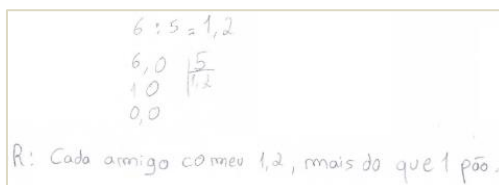 6 : 5 = 1,2
6,0 | 5
1 0 1,2
0,0
R: Cada amigo comeu 1,2, mais do que 1 pão.